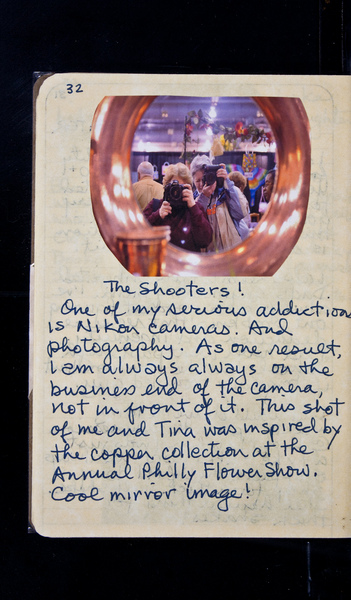 32
The Shooters!
One of my serious addictions
is Nikon cameras. And
photography. As one result,
I am always always on the
business end of the camera,
not in front of it. This shot
of me and Tina was inspired by
the copper collection at the
Annual Philly Flower Show.
Cool mirror image!